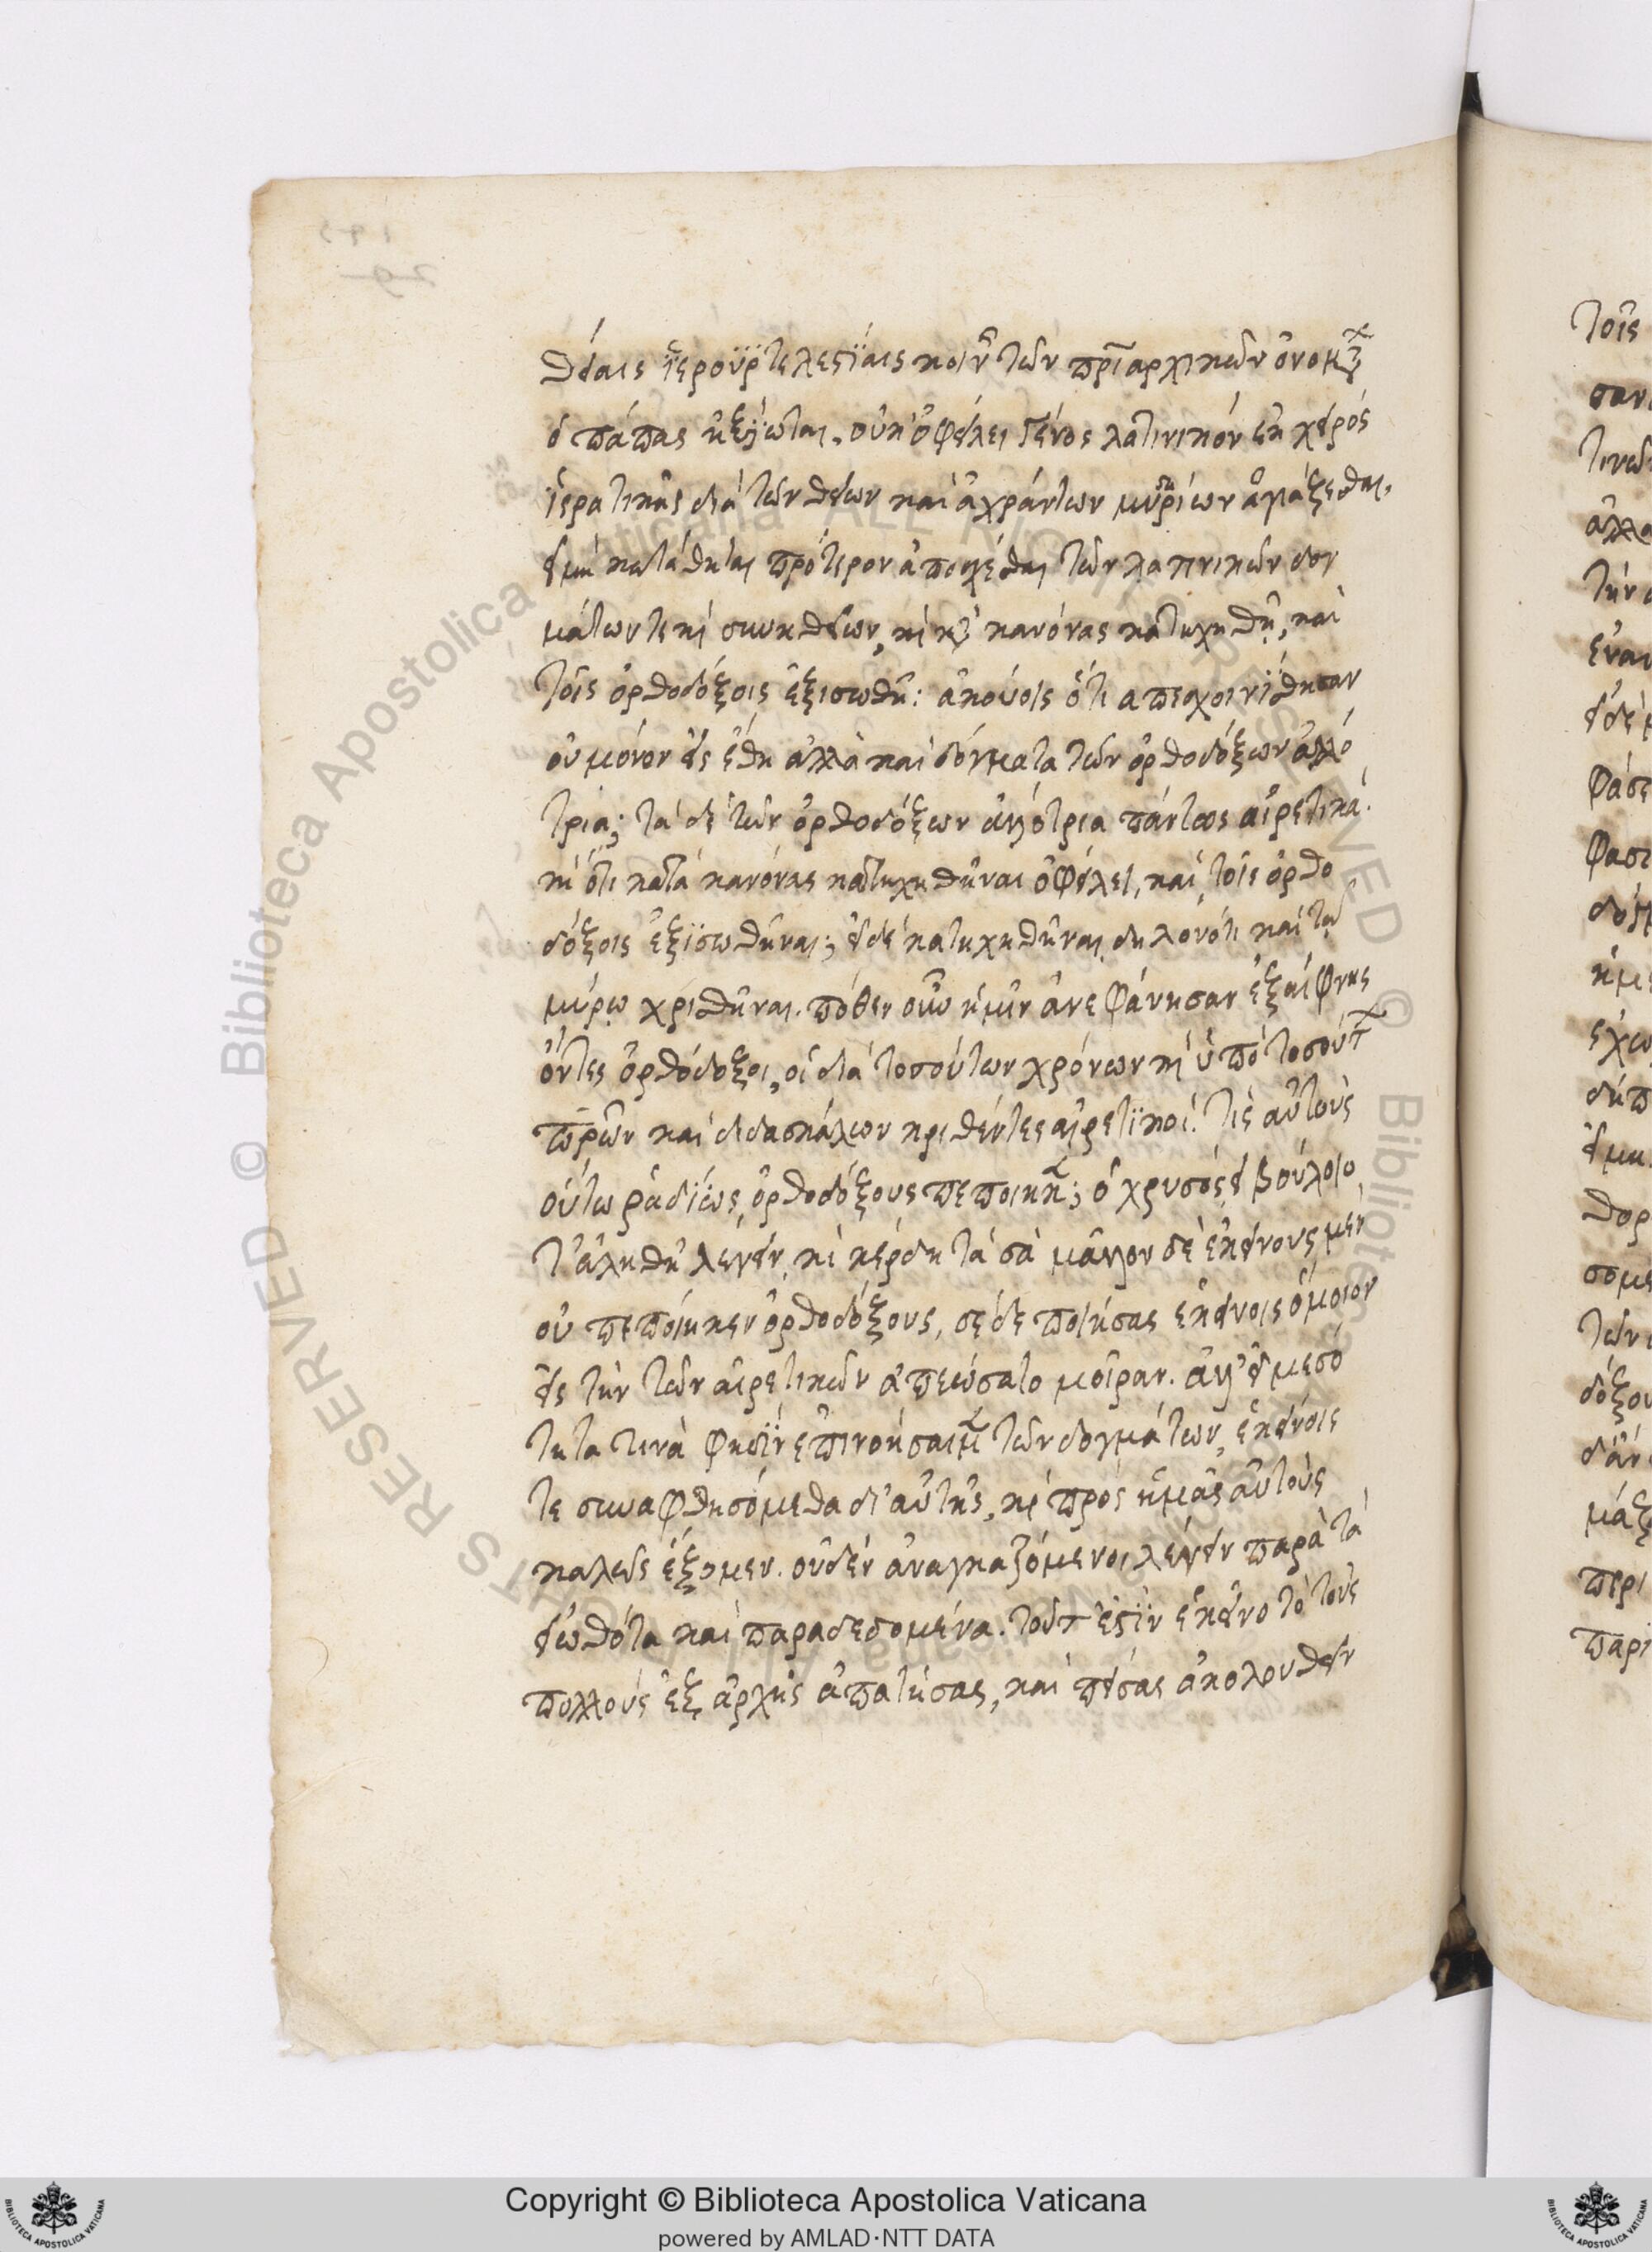 θείαις ἱερουργ τελεστίαις κοιν τῶν πριαρχικῶν ὀνομ
ὁ πάπας ἠξίωται, οὐκ ὀφείλει γένος λατινικόν ἐκ χειρός
ἱερατικῆς διά τῶν θείων καί ἀχράντων μυρίων ἁγιάζεσθαι,
εἰ μή κατάθηται πρότερον ἀποσχέσθαι τῶν λατινικῶν δογ
μάτων τε καί συνηθειῶν, καί κατά κανόνας κατηχηθῆ, καί
τοῖς ὀρθοδόξοις ἐξισωθῆ: ἀκούεις ὅτι ἀπεσχοινίσθησαν
οὐ μόνον εἰς ἔθη ἀλλὰ καί δόγματα τῶν ὀρθοδόξων ἀλλό
τρια; τά δέ τῶν ὀρθοδόξων ἀλλότρια πάντως αἱρετικά.
καί ὅτι κατά κανόνας κατηχηθῆναι ὀφείλει, καί τοῖς ὀρθο
δόξοις ἐξισωθῆναι; εἰ δέ κατηχηθῆναι δηλονότι καί τῶ
μύρω χρισθῆναι. πόθεν οὖν ἡμῖν ἀνεφάνησαν ἐξαίφνης
ὄντες ὀρθόδοξοι, οἱ διά τοσούτων χρόνων καί ὑπό τοσούτ
πρων καί διδασκάλων κριθέντες αἱρετικοί. τίς αὐτούς
οὕτω ῥαδίως ὀρθοδόξους πεποίηκ; ὁ χρυσός εἰ βούλοιο
τἀληθῆ λέγειν, καί κέρδη τά σά μᾶλλον δὲ ἐκείνους μέν
οὐ πεποίηκεν ὀρθοδόξους, σέ δε ποιήσας ἐκείνοις ὅμοιον
εἰς τήν τῶν αἱρετικῶν ἀπεώσατο μοῖραν. ἀλλ' εἰ μεσό
τητα τινὰ φησίν ἐπινοήσαιμ τῶν δογμάτων, ἐκείνοις
τε συναφθησόμεθα δι' αὐτῆς, καί πρός ἡμᾶς αὐτούς
καλῶς ἕξομεν. οὐδέν ἀναγκαζόμενοι λέγειν παρὰ τὰ
εἰωθότα καί παραδεδομένα. τοῦτ ἐστίν ἐκεῖνο τό τούς
πολλούς ἐξ ἀρχῆς ἀπατήσας, καί πείσας ἀκολουθεῖν
Copyright © Biblioteca Apostolica Vaticana
powered by AMLAD·NTT DATA